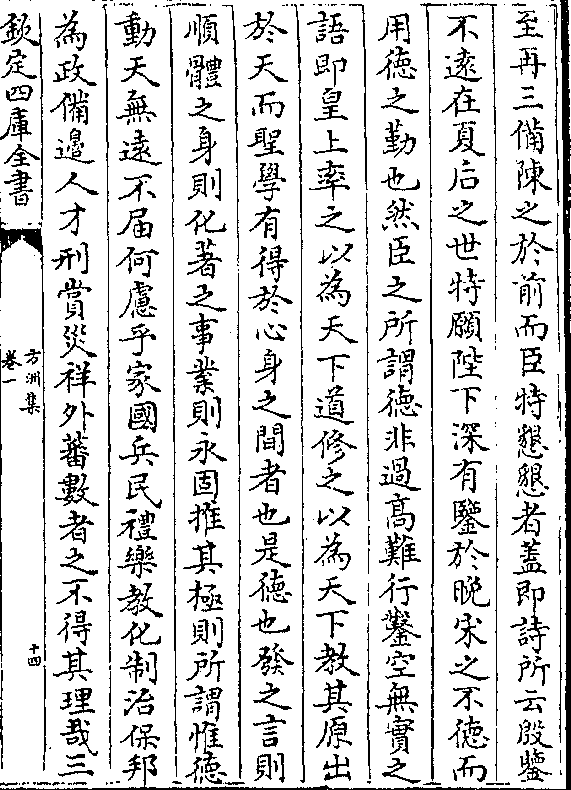 至再三備陳之於前而臣特懇懇者盖即詩所云殷鑒
不遠在夏后之世特願陛下深有鑒於晚宋之不徳而
用徳之勤也然臣之所謂徳非過髙難行鑿空無實之
語即皇上率之以為天下道修之以為天下教其原出
於天而聖學有得於心身之間者也是徳也發之言則
順體之身則化著之事業則永固推其極則所謂惟徳
動天無遠不届何慮乎家國兵民禮樂教化制治保邦
為政備邊人才刑賞災祥外蕃數者之不得其理哉三
欽定四庫全書
方洲集
卷一
十四